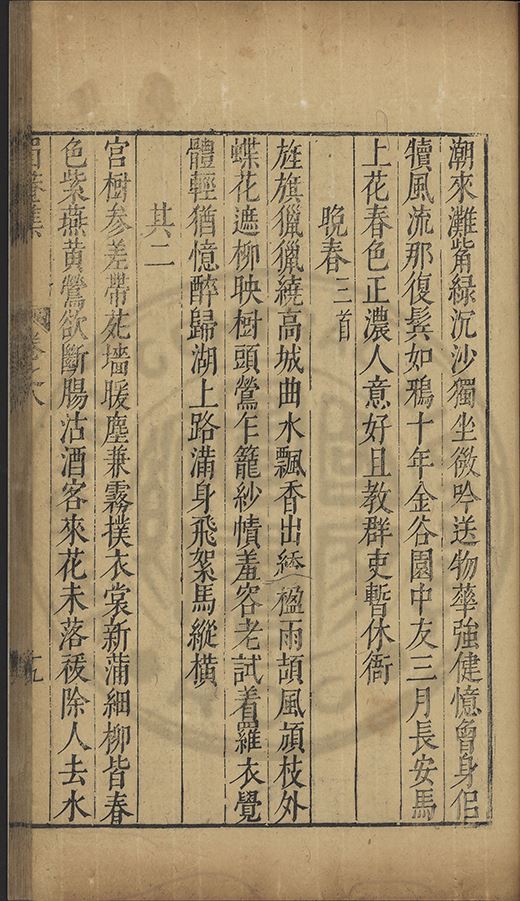 潮來灘觜綠沉沙獨坐微吟送物華強健憶曾身佀
犢風流那復鬂如鴉十年金谷園中友三月長安馬
上花春色正濃人意好且教群吏暫休衙
晚春三首
旌旗獵獵繞高城曲水飄香出綉楹雨頡風頏枝外
蝶花遮柳映樹頭鶯乍籠紗幘羞客老試着羅衣覺
體輕猶憶醉歸湖上路滿身飛絮馬縱橫
其二
宮樹參差帶苑墻暖塵兼霧撲衣裳新蒲細柳皆春
色紫燕黃鶯欲斷腸沽酒客來花未落祓除人去水
九